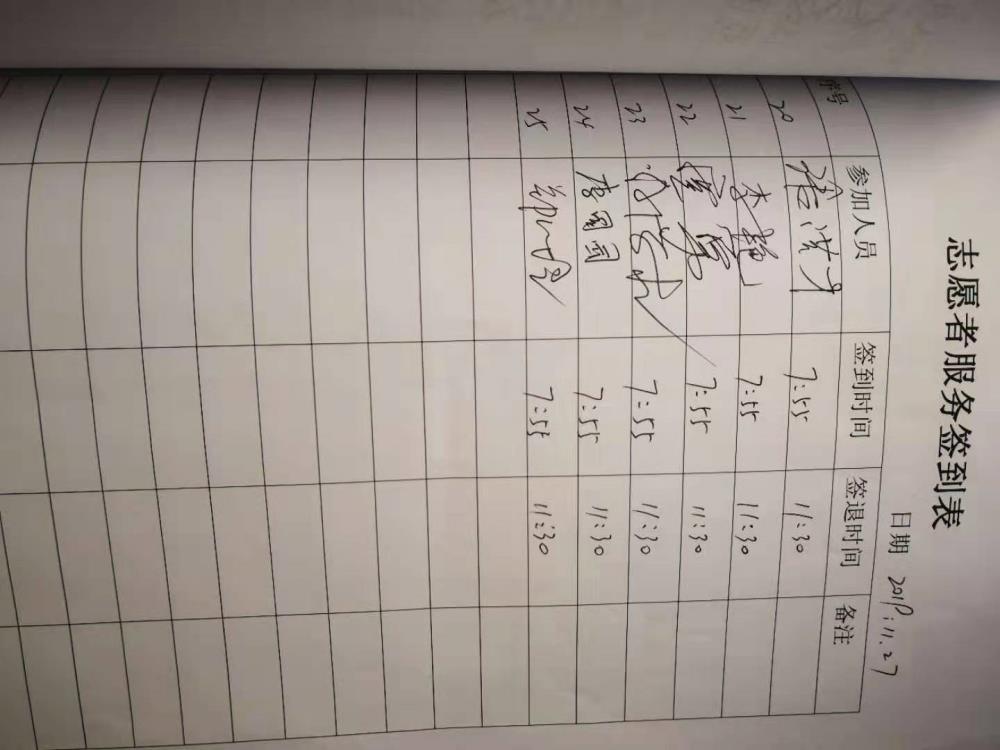 志愿者服务签到表
日期 2019.11.27
序号 参加人员 签到时间 签退时间 备注
20 7:55 11:30
21 李艳 7:55 11:30
22 7:55 11:30
23 7:55 11:30
24 唐圆圆 7:55 11:30
25 7:55 11:30